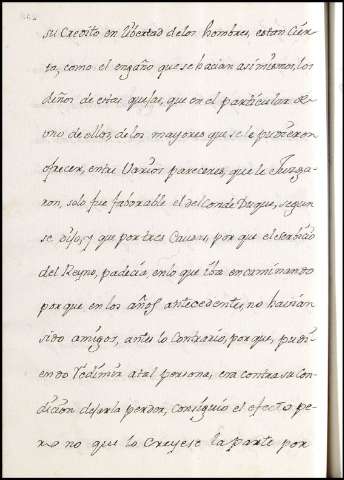 su Credito en libertad delos hombres, estan Cier-
ta, como el engaño que se hacian asi mismos, los
dueños de estas quejas, que en el particular de
uno de ellos, de los mayores que se le pudieron
ofrecer, entre Varios pareceres, que le Juzga-
ron, solo fue faborable el del Conde Duque, segun
se dijo, y que por tres Causas, por que el serbicio
del Reyno, padecia, en lo que iba encaminando
por que en los años antecedentes, no havian
sido amigos, antes lo Contrario, por que, pudi-
endo Redimir a tal persona, era contra su Con-
dicion dejarla perder, Consiguio el efecto, pe-
ro no que lo Creyese la parte por